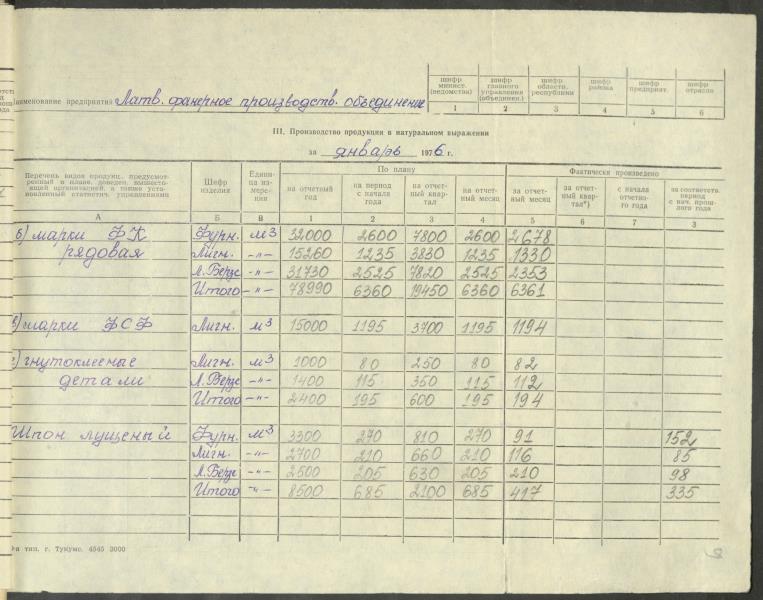 шифр минист. (ведомства) шифр главного управления (объединен.) шифр области, республики шифр района шифр предприят. шифр отрасли
1 2 3 4 5 6
(наименование предприятия Латв. фанерное производств. объединение
III. Производство продукции в натуральном выражении
за январь 1976 г.
Перечень видов продукц., предусмотренный в плане, доведен. вышестоящей организацией, а также установленный статистич. управлениями Шифр изделия Единица измерения По плану Фактически произведено
на отчетный год на период с начала года на отчетный квартал на отчетный месяц за отчетный месяц за отчетный квартал*) с начала отчетного года за соответств. период с нач. прошлого года
А Б В 1 2 3 4 5 6 7 8
б) марки ФК Фурн. м3 32000 2600 7800 2600 2678
рядовая Лигн. -"- 15260 1235 3830 1235 1330
Л.Берзс -"- 31730 2525 7820 2525 2353
Итого -"- 78990 6360 19450 6360 6361
в) марки ФСФ Лигн. м3 15000 1195 3700 1195 1194
г) гнутоклееные Лигн. м3 1000 80 250 80 82
детали Л.Берзс -"- 1400 115 350 115 112
Итого -"- 2400 195 600 195 194
Шпон лущеный Фурн. м3 3300 270 810 270 91 152
Лигн. -"- 2700 210 660 210 116 85
Л.Берзс -"- 2500 205 630 205 210 98
Итого -"- 8500 685 2100 685 417 335
тип. г. Тукумс. 4545 3000